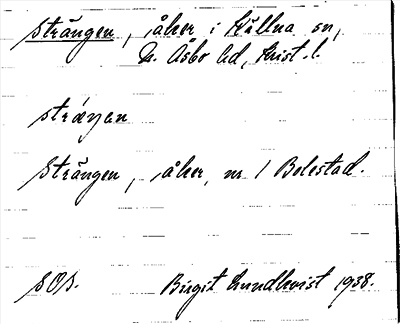 Strängen, åker i Källna sn,
N. Åsbo hd, Krist. l.
stræŋən
Strängen, åker, nr 1 Bolestad.
SOS. Birgit Lundkvist 1938.